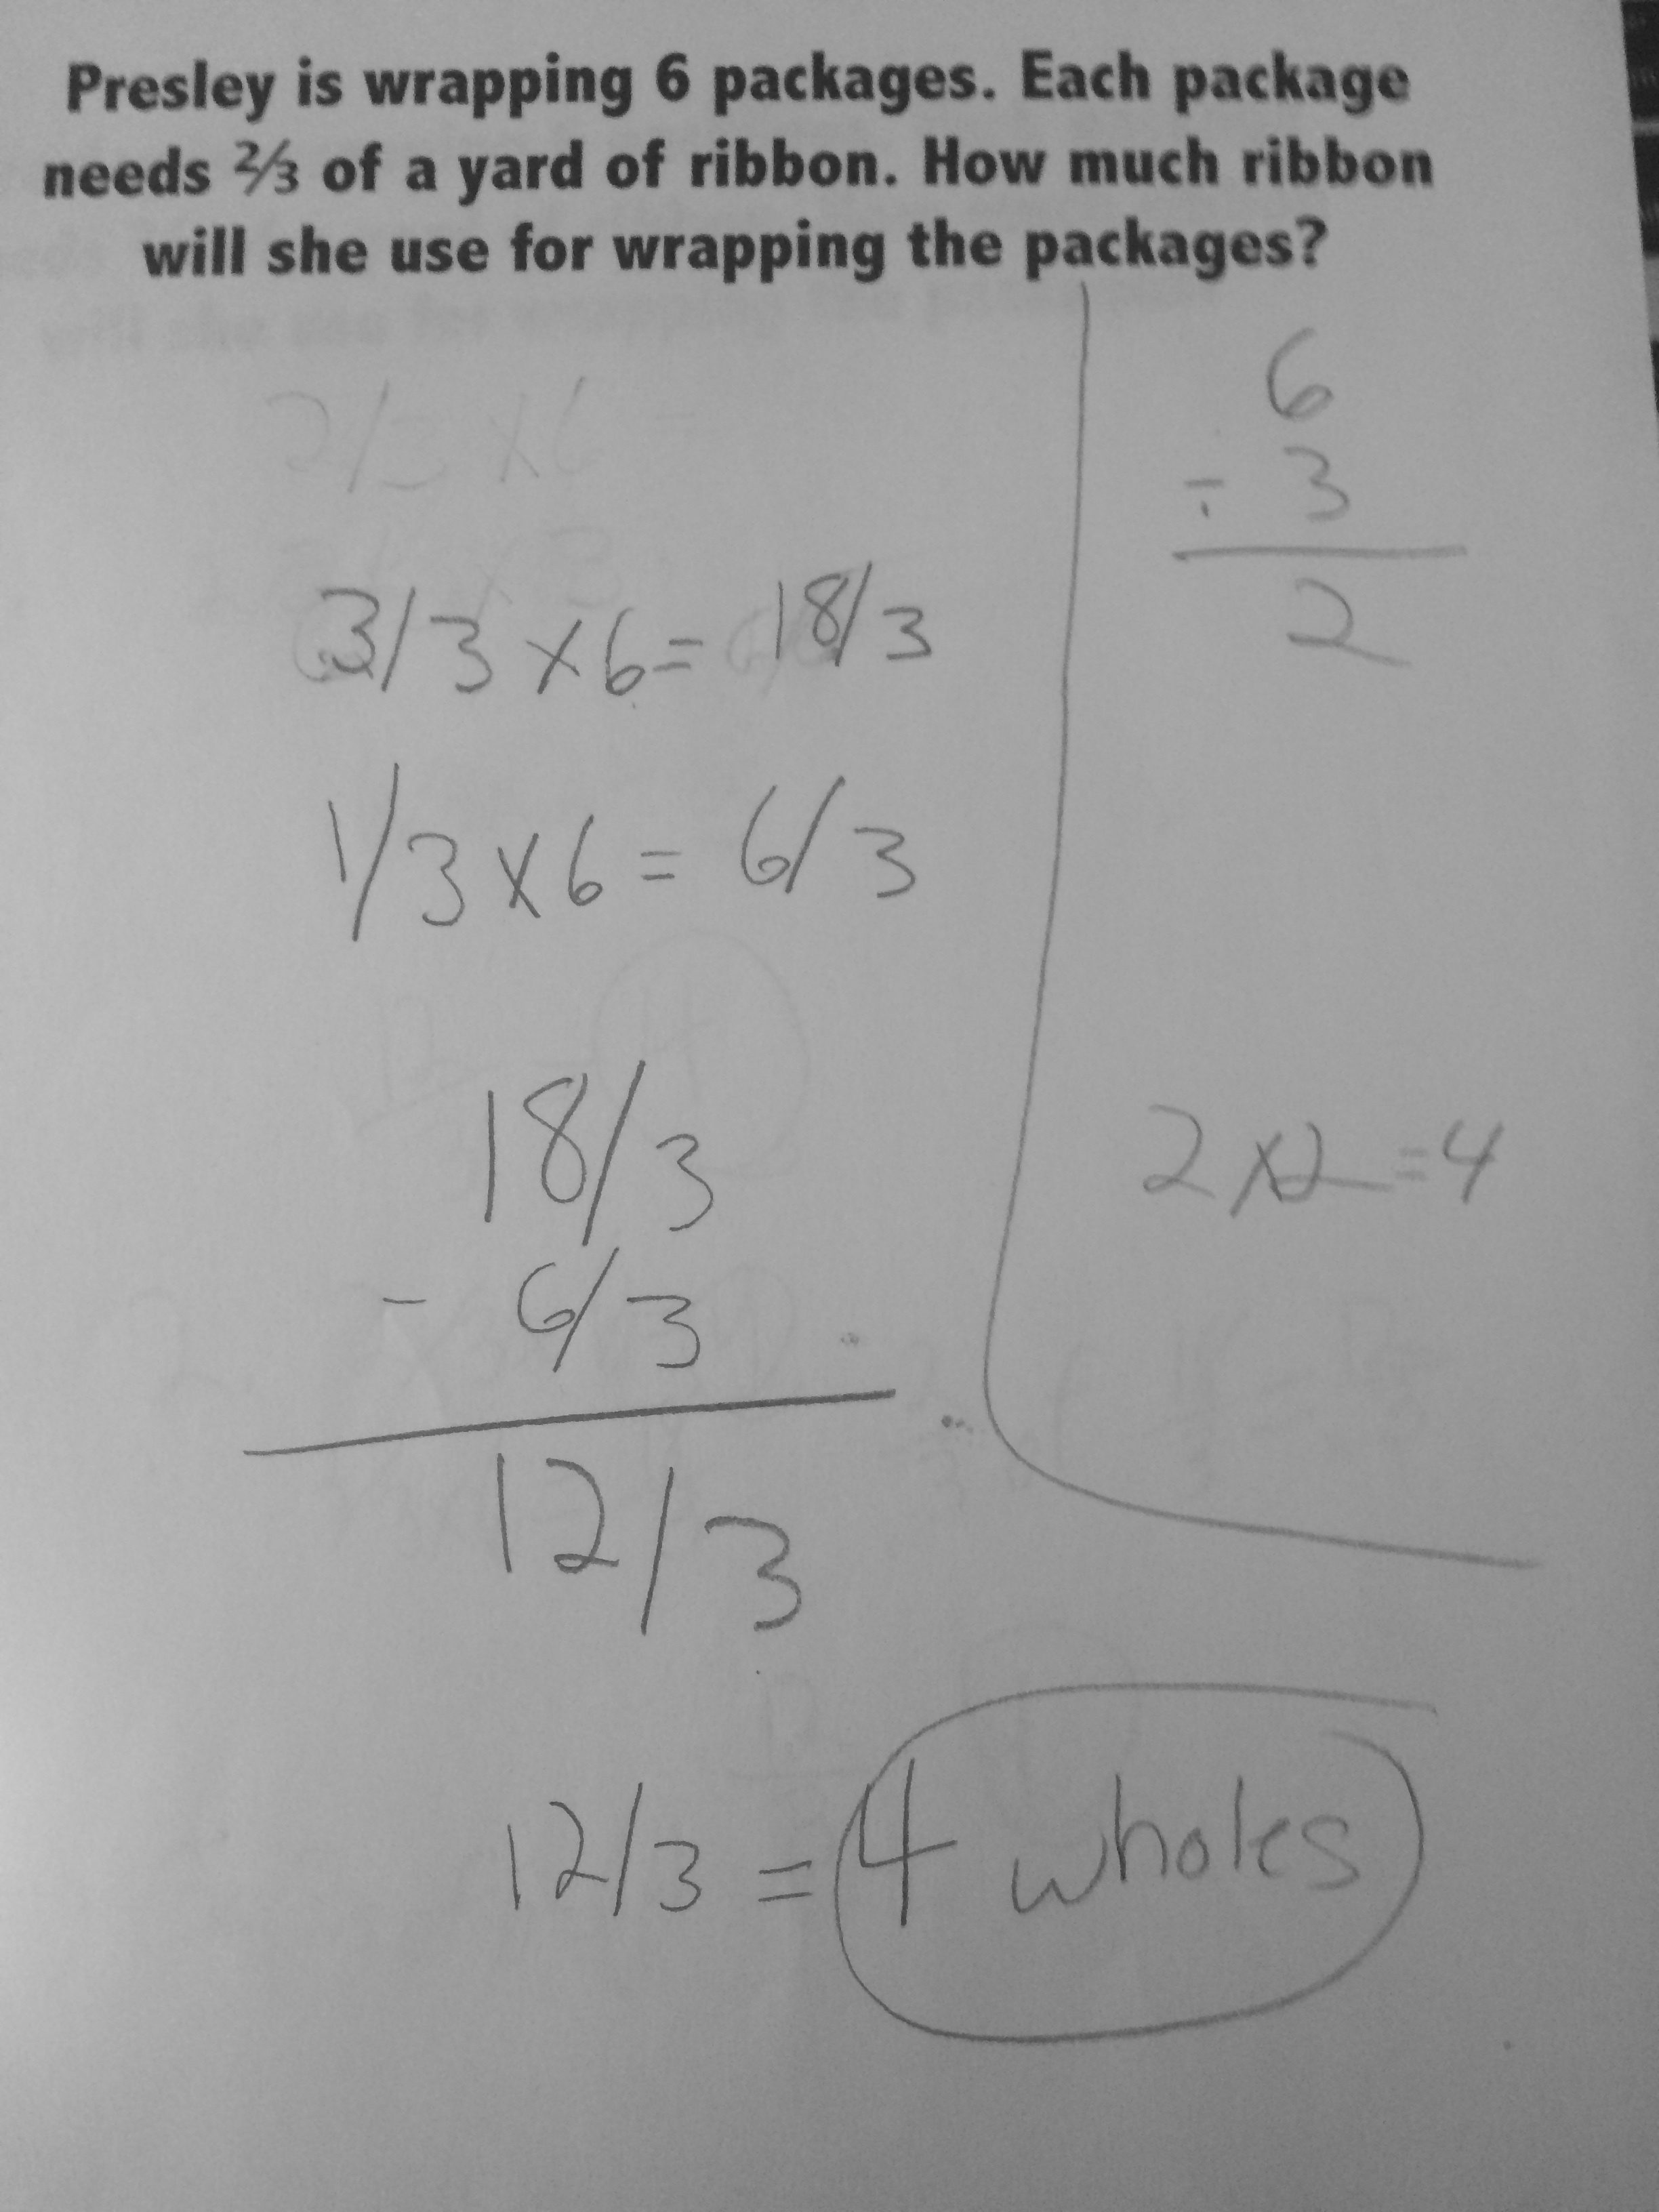 Presley is wrapping 6 packages. Each package
needs ⅔ of a yard of ribbon. How much ribbon
will she use for wrapping the packages?
2/3 x6 =
3/3 x 6 = 18/3
1/3 x 6 = 6/3
18/3
- 6/3
12/3
12/3 = 4 wholes
6
÷ 3
2
2 x 2 = 4